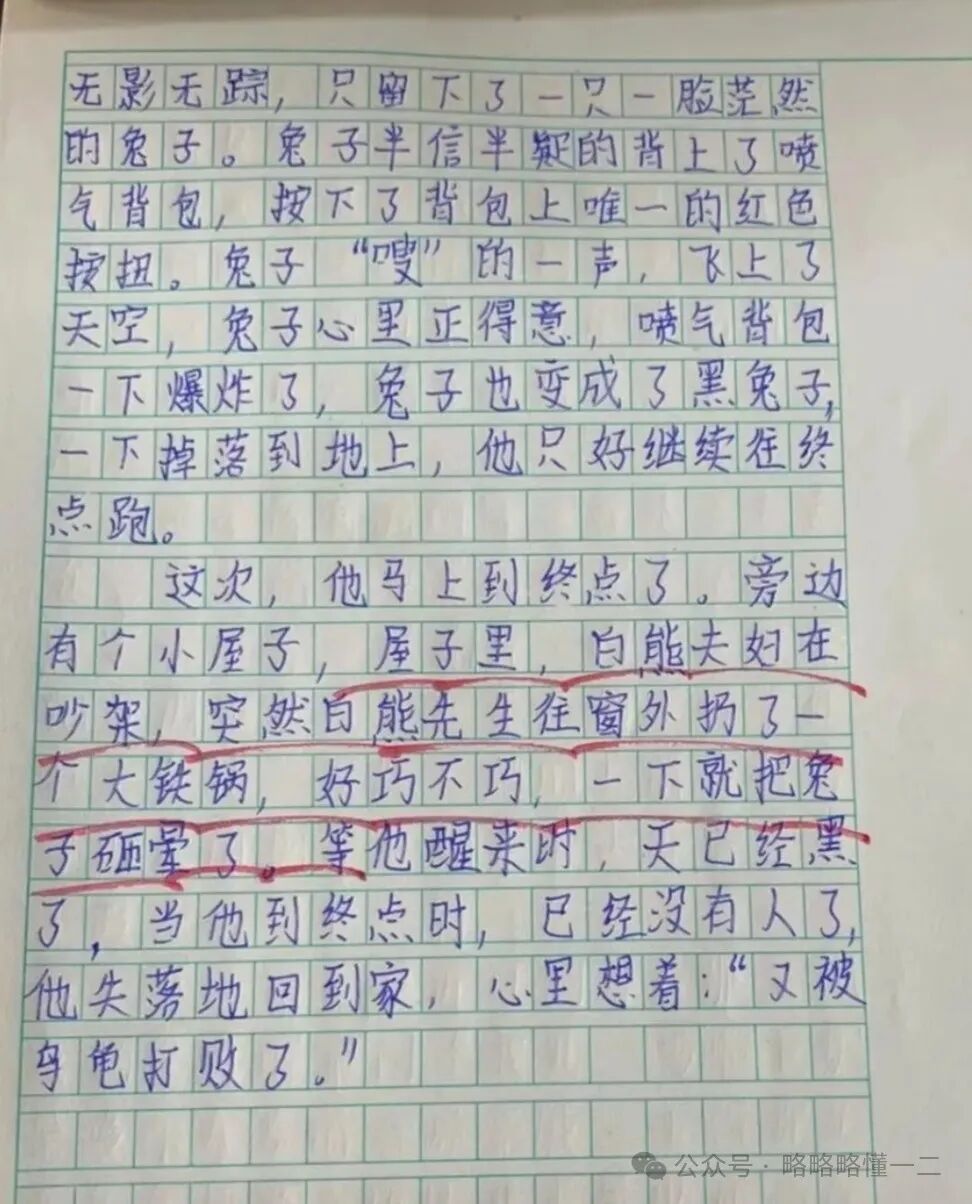 无影无踪，只留下了一只一脸茫然
的兔子。兔子半信半疑的背上了喷
气背包，按下了背包上唯一的红色
按扭。兔子“嗖”的一声，飞上了
天空，兔子心里正得意，喷气背包
一下爆炸了，兔子也变成了黑兔子，
一下掉落到地上，他只好继续往终
点跑。
这次，他马上到终点了。旁边
有个小屋子，屋子里，白熊夫妇在
吵架，突然白熊先生往窗外扔了一
个大铁锅，好巧不巧，一下就把兔
子砸晕了。等他醒来时，天已经黑
了，当他到终点时，已经没有人了，
他失落地回到家，心里想着：“又被
乌龟打败了。”
公众号·略略略懂一二